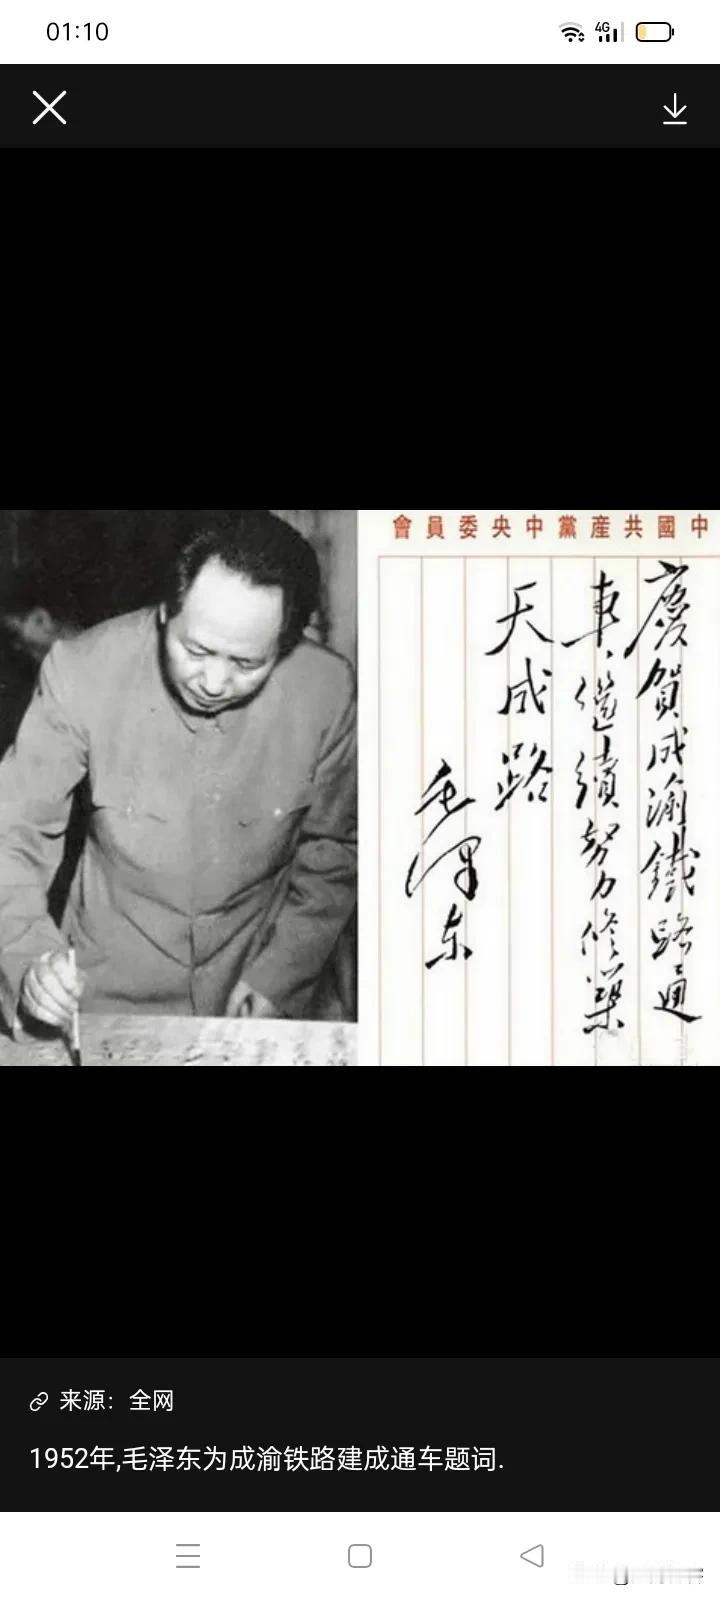 01:10
4G
中國共産黨中央委員會
慶賀成渝鐵路通
車，繼續努力修築
天成路
毛澤东
来源：全网
1952年,毛泽东为成渝铁路建成通车题词.